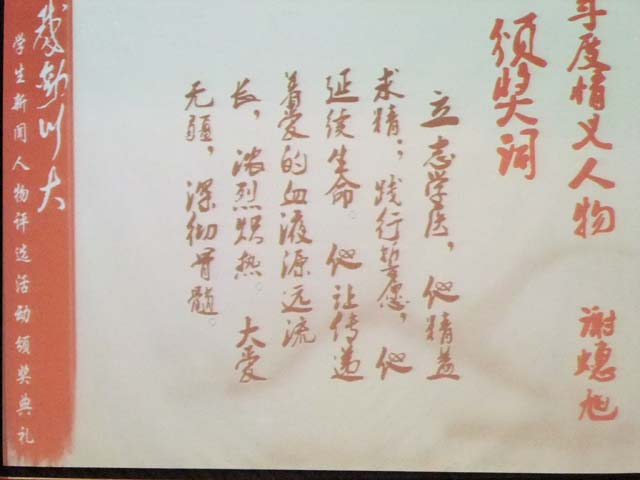 年度情义人物
谢璁旭
颁奖词
立志学医，他精益
求精；践行誓愿，他
延续生命。他让传递
着爱的血液源远流
长，浓烈炽热。大爱
无疆，深彻骨髓。
感动川大
学生新闻人物评选活动颁奖典礼